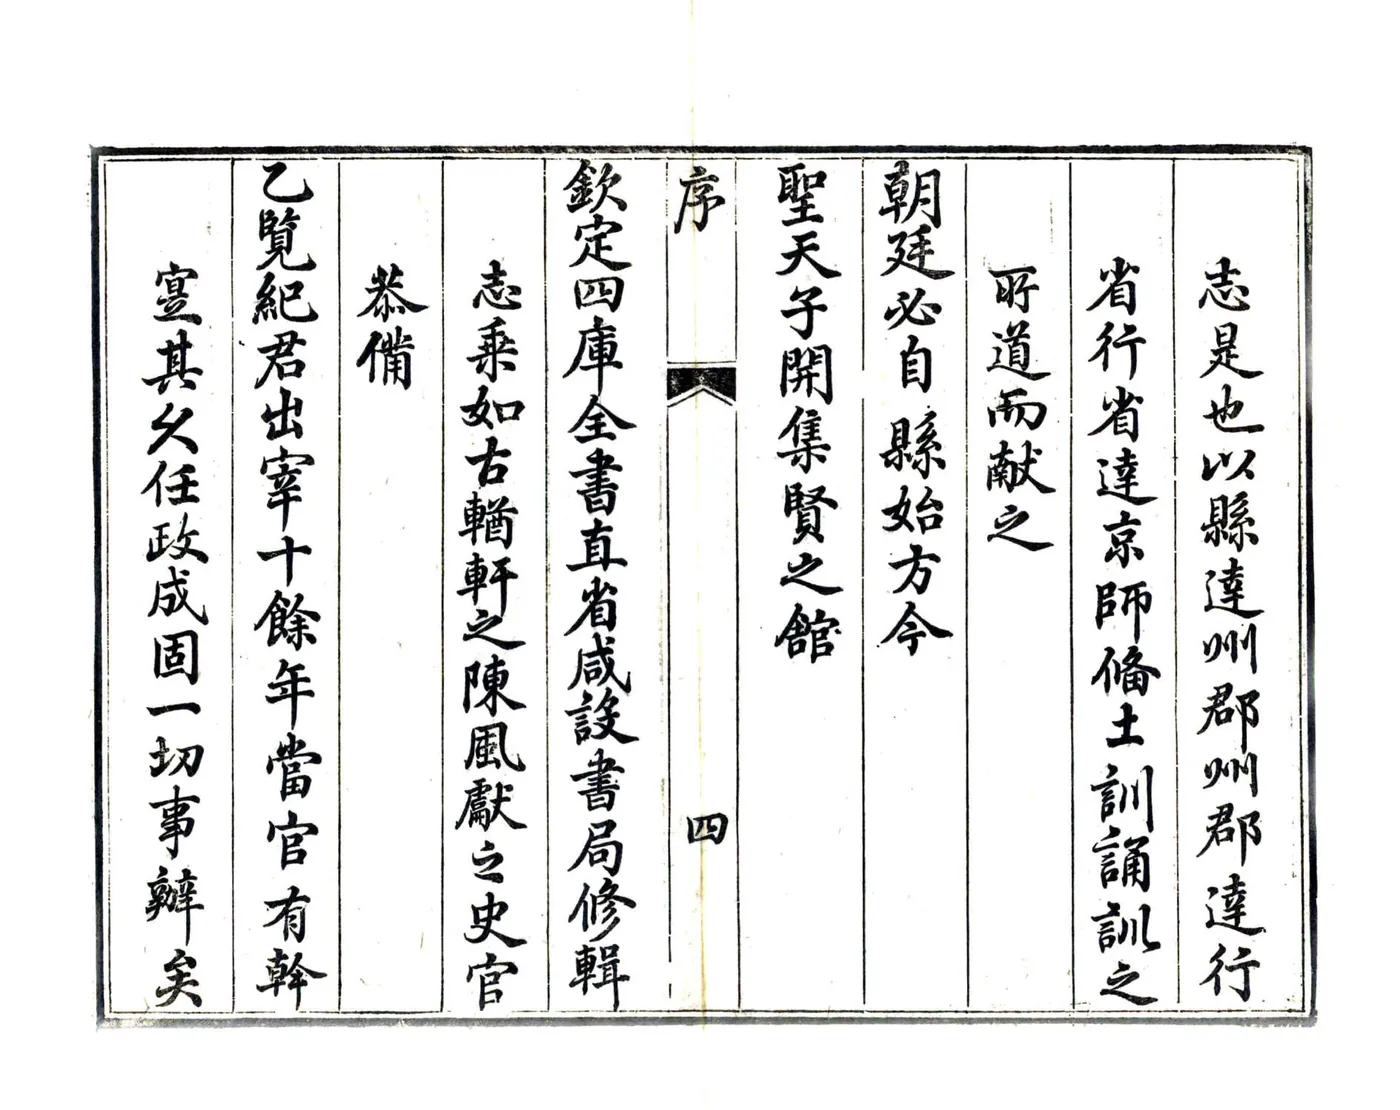 志是也以縣達州郡州郡達行
省行省達京師備土訓誦訓之
所道而献之
朝廷必自縣始方今
聖天子開集賢之舘
序
四
欽定四庫全書直省咸設書局修輯
志乘如古輶軒之陳風獻之史官
恭備
乙覧紀君出宰十餘年當官有幹
寔其久任政成固一切事辦矣